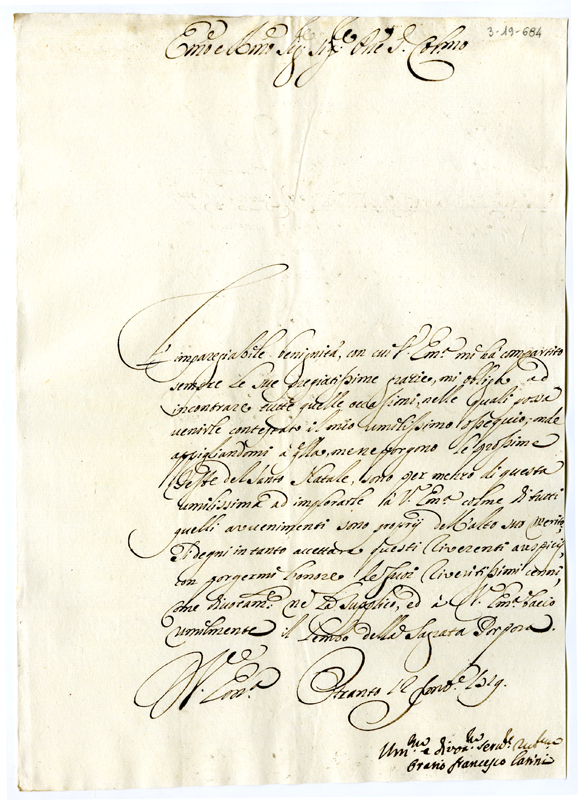 3-19-684
Em.o e Rmo Sig.r Sig.r P.rone Colmo
L'impareggiabile benignità, con cui V. Em.a mi hà compartito
sempre le sue pregiatissime grazie, mi obliga ad
incontrare tutte quelle occasioni, nelle quali possa
venirle contestato il mio umilissimo ossequio; onde
a me ne porgono le prossime
Feste del Santo Natale, sono per mezzo di questa
umilissima ad implorarle la V. Em.a colme di tutti
quelli avvenimenti sono proprij dell'alto suo merito.
Si degni intanto accettare questi riverenti auspicij,
con porgermi l'onore de suoi riveritissimi cenni,
come divotam.te ne La supplico, ed à V. Em.a bacio
umilmente il lembo della Sagrata Porpora.
V. Em.a
Otranto 12
Um.mo e divot.mo serv.re
Orazio Francesco